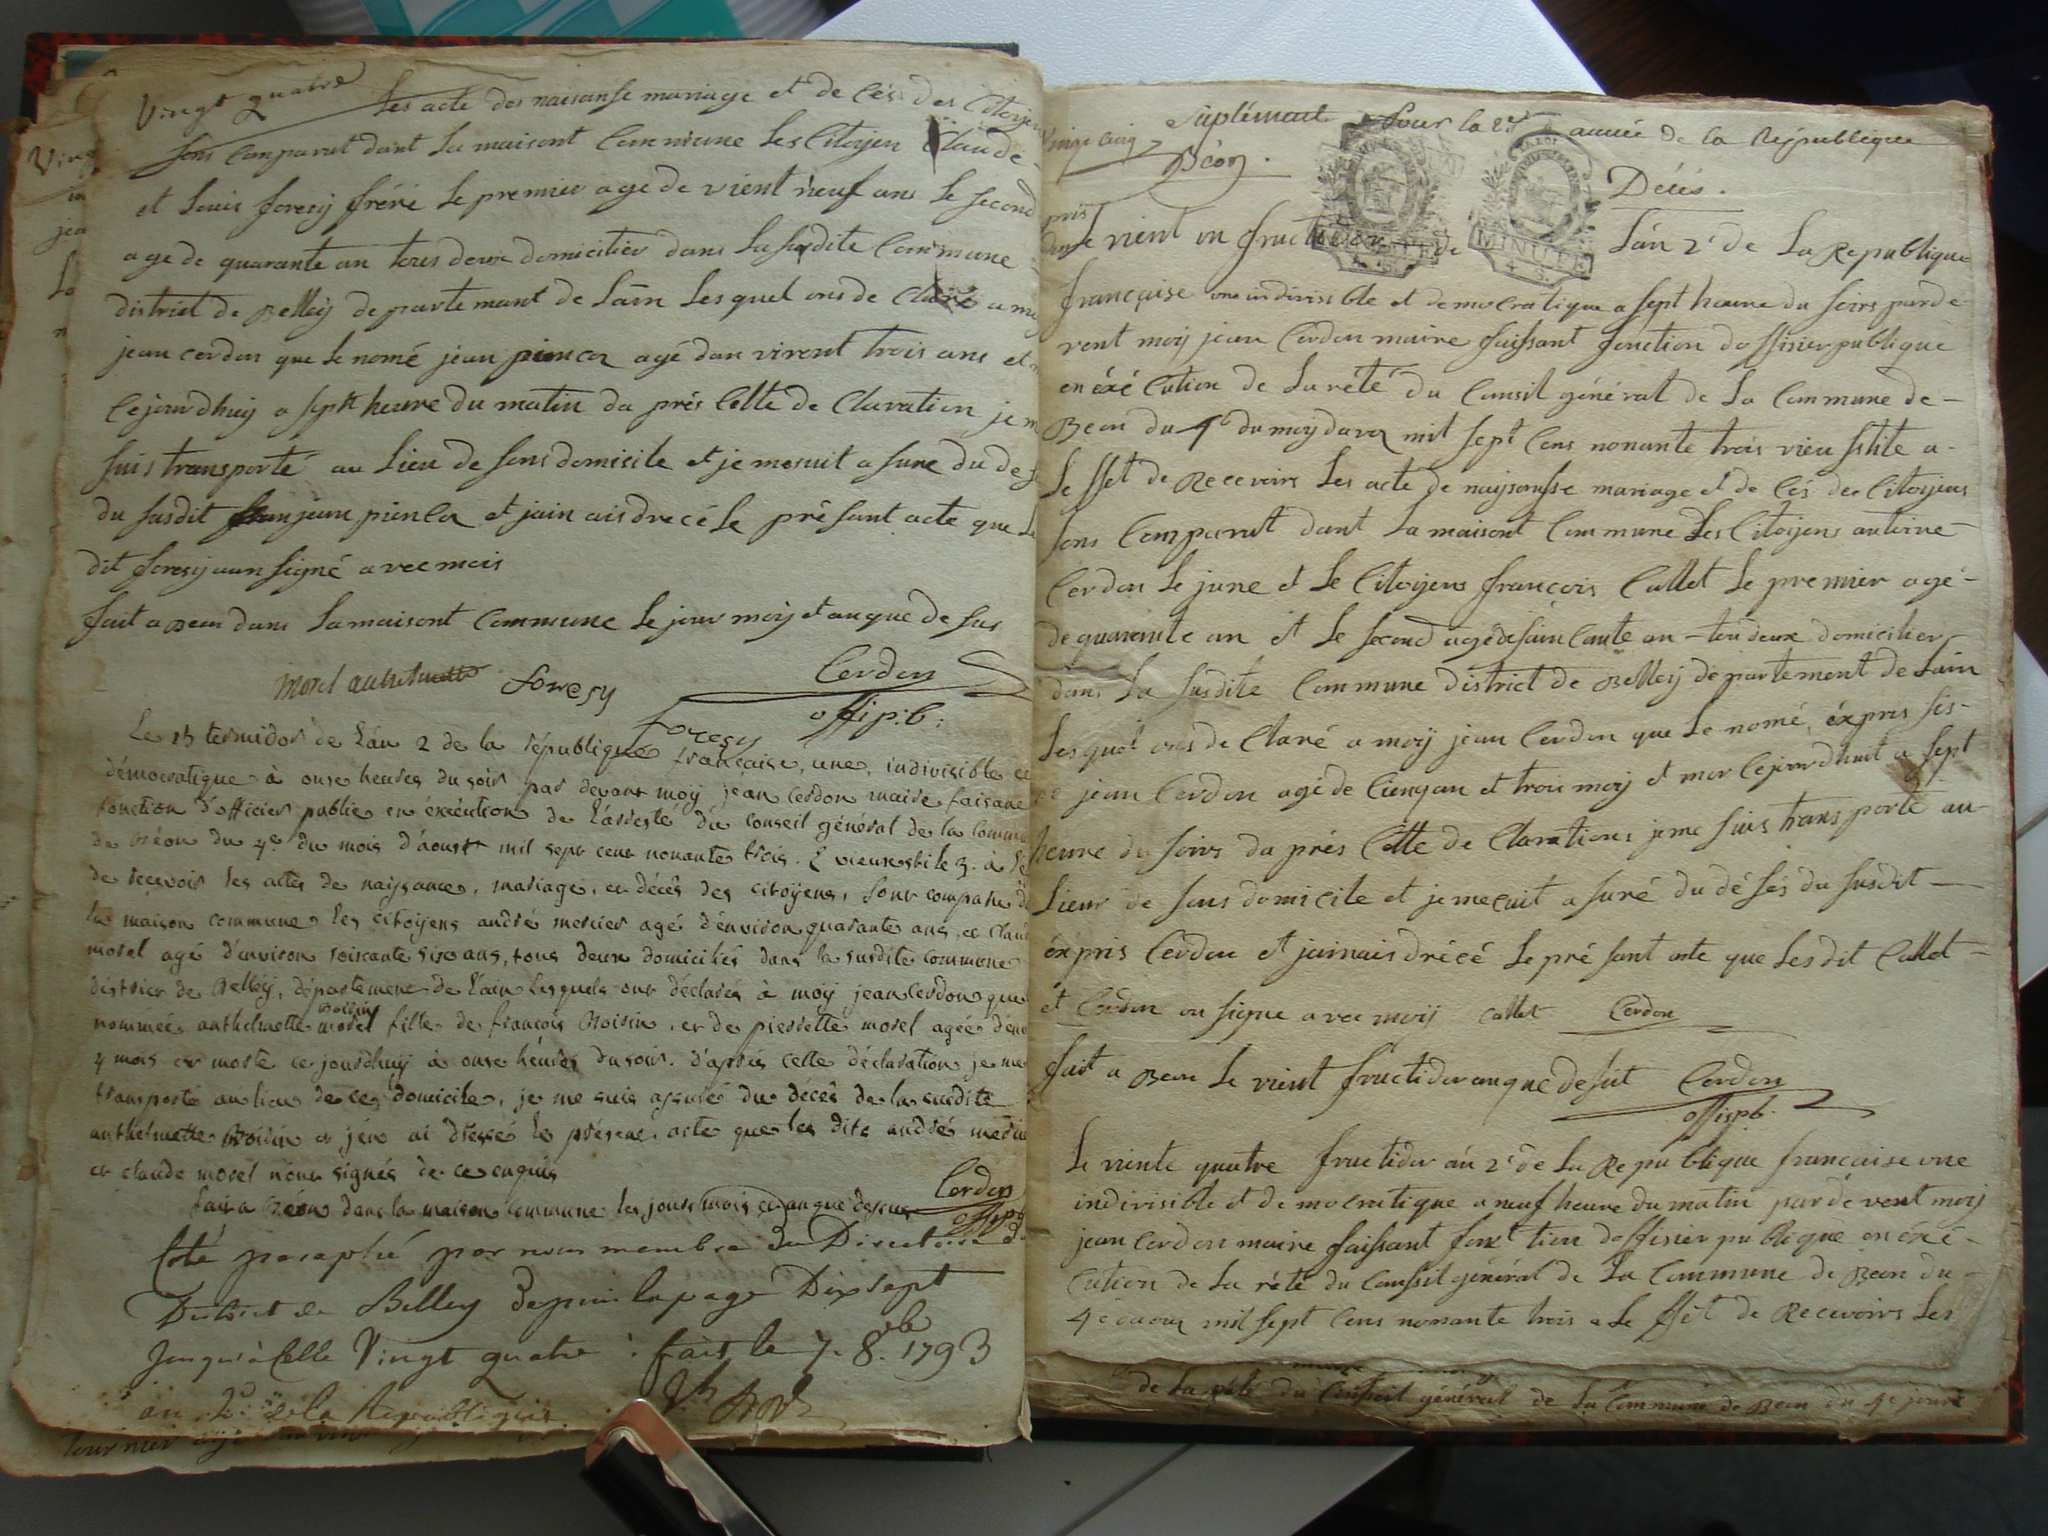 Vingt quatre
Les acte des naisansse mariage et de cés des Citoyen
sons Conparut dant La maisont Commune Les Citoyen Claude
et Louis foresy fréré Le premier age de vient neuf ans Le second
age de quarante an tous deux domicilier dans La susdite Commune
district de Belley departemant de Lain Lesquel ons de Claré a moy
jean cerdon que Le nomé jean agé dan viront trois ans et
Cejourdhuy a sept heure du matin da prés Cette de Claration je m
suis transporté au Lieu de sons domicile et je mesuit a sure du de
du susdit jean et jain ais drecé Le présant acte que Le
dit foresy aun signé avec mois
fait a Beon dans La maisont Commune Le jour moy et an que de sus
morel foresy Cerdon
foresy offi p:b:
Le termidor de L'an 2 de la république française, une, indivisible et
démocratique à onse heures du soir par devant moy jean Cerdon maire faisant
fonction d'officier public en éxécution de L'arresté du conseil général de la commu
de Béon du 4e du mois d'aoust mil sept cent nonante trois. vieux stile à
de recevoir les actes de naissance, mariage, et décès des citoyens, sont comparu d
la maison commune les citoyens andré mercier agé d'environ quarante ans, et claude
morel agé d'environ soixante six ans, tous deux domiciliés dans la susdite commune
district de Belley, département de L'ain lesquels ont déclarés à moy jean Cerdon que
nommée anthelmette morel fille de françois Roisin, et de pierrette morel agée d'env
4 mois est morte ce jourdhuy à onse heures du soir. d'après cette déclaration je me
transporté au lieu de ce domicile, je me suis assuré du décès de la susdite
anthelmette Roisin et j'en ai dressé le présent acte que les dits andré mercie
et claude morel n'ont signés de ce enquis
fait a Béon dans la maison commune les jour mois et an que dessus Cerdon
Coté paraphé par nous membre du Directoire du
District de Belley depuis la page Dix sept
jusqu'à Celle Vingt quatre : fait le 7. 8.bre 1793
an 2.d de la République
vingt cinq suplément Pour la 2e année de la République
Béon.
Décés.
MINUTE
MINUTE
4 S.
Le vient un fructidor de Lán 2e de La Republique
française une indivisible et democratique a sept heure du soirs parde
vent moy jean Cerdon maire faissant fonction doffisier publique
en éxé Cution de La rété du Consil général de La Commune de
Beon du 4e du moy daou mil sept Cens nonante trois vieu stile a
Le ffet de Recevoirs Les acte de nayssansse mariage et de Cés des Citoyens
sons Comparut dant La maisont Commune Les Citoyens antoine
Cerdon Le june et Le Citoyens françois Callet Le premier agé
de quarante an et Le second agé de sain Cante an tou deux domicilier
dans La susdite Commune district de Belley departement de Lain
Lesquel ons de Claré a moy jean Cerdon que Le nomé, éxpris
jean Cerdon agé de Cienq an et trois moy et mor Cejourdhuit a sept
heure du soirs da prés Cette de Clarations je me suis transporté au
Lieux de sons domicile et je mecuit a suré du dé sés du susdit
éxpris Cerdon et jainais drécé Le pré sant acte que Lesdit Callet
et Cerdon on signe avec moy callet Cerdon
fait a Beon Le vient fructidor an que de sut Cerdon
offisp.b.
Le viente quatre fructidor án 2e de La Republique francaise une
indivisible et de mocratique a neuf heure du matin par de vent moy
jean Cerdon maire faissant fonc tion doffisier publique en éxé
Cution de La rété du Conssil général de La Commune de Beon du
4e daoux mil sept Cens nonante trois a Le ffét de Recevoirs Les
de La rété du Conseil général de La Commune de Beon du 4e jour